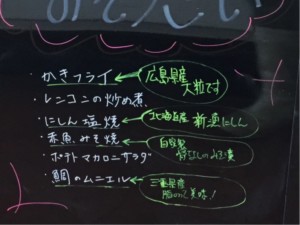 かきフライ 広島県産 大粒です
・レンコンの炒め煮
・にしん塩焼 北海道産 新生にしん
・赤魚みそ焼 自家製
・ポテトマカロニサラダ
・鯛のムニエル 三重県産 脂のって美味!